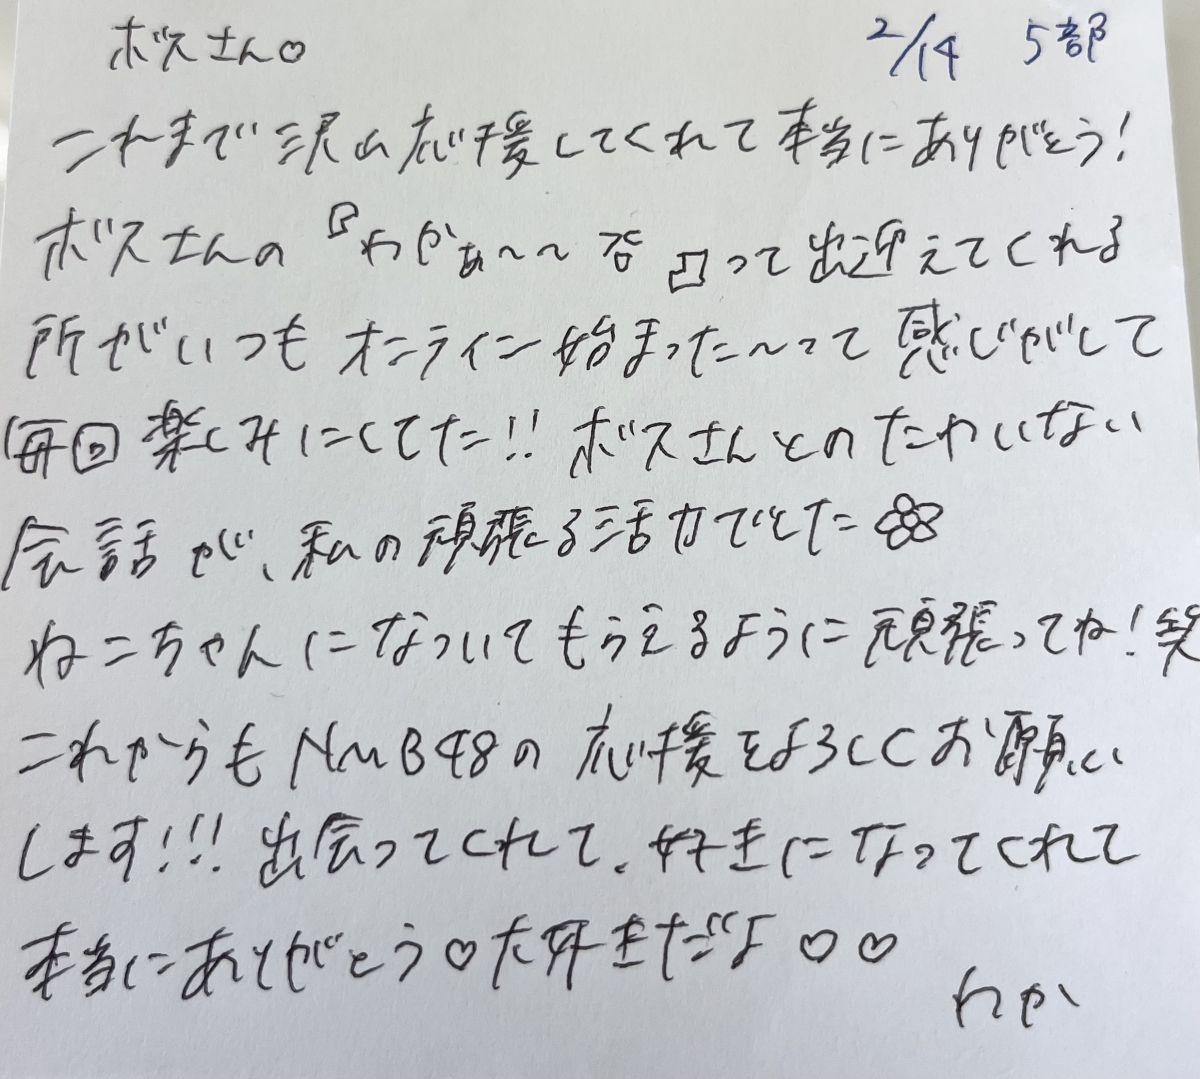 ボスさん♡ 2/14 5部
これまで沢山応援してくれて本当にありがとう!
ボスさんの『わかぁ〜〜 』って出迎えてくれる
所がいつもオンライン始まった〜って感じがして
毎回楽しみにしてた!! ボスさんとのたわいない
会話が、私の頑張る活力でした
ねこちゃんになついてもらえるように頑張ってね!笑
これからもNMB48の応援をよろしくお願い
します!!! 出会ってくれて、好きになってくれて
本当にありがとう♡大好きだよ♡♡
わか